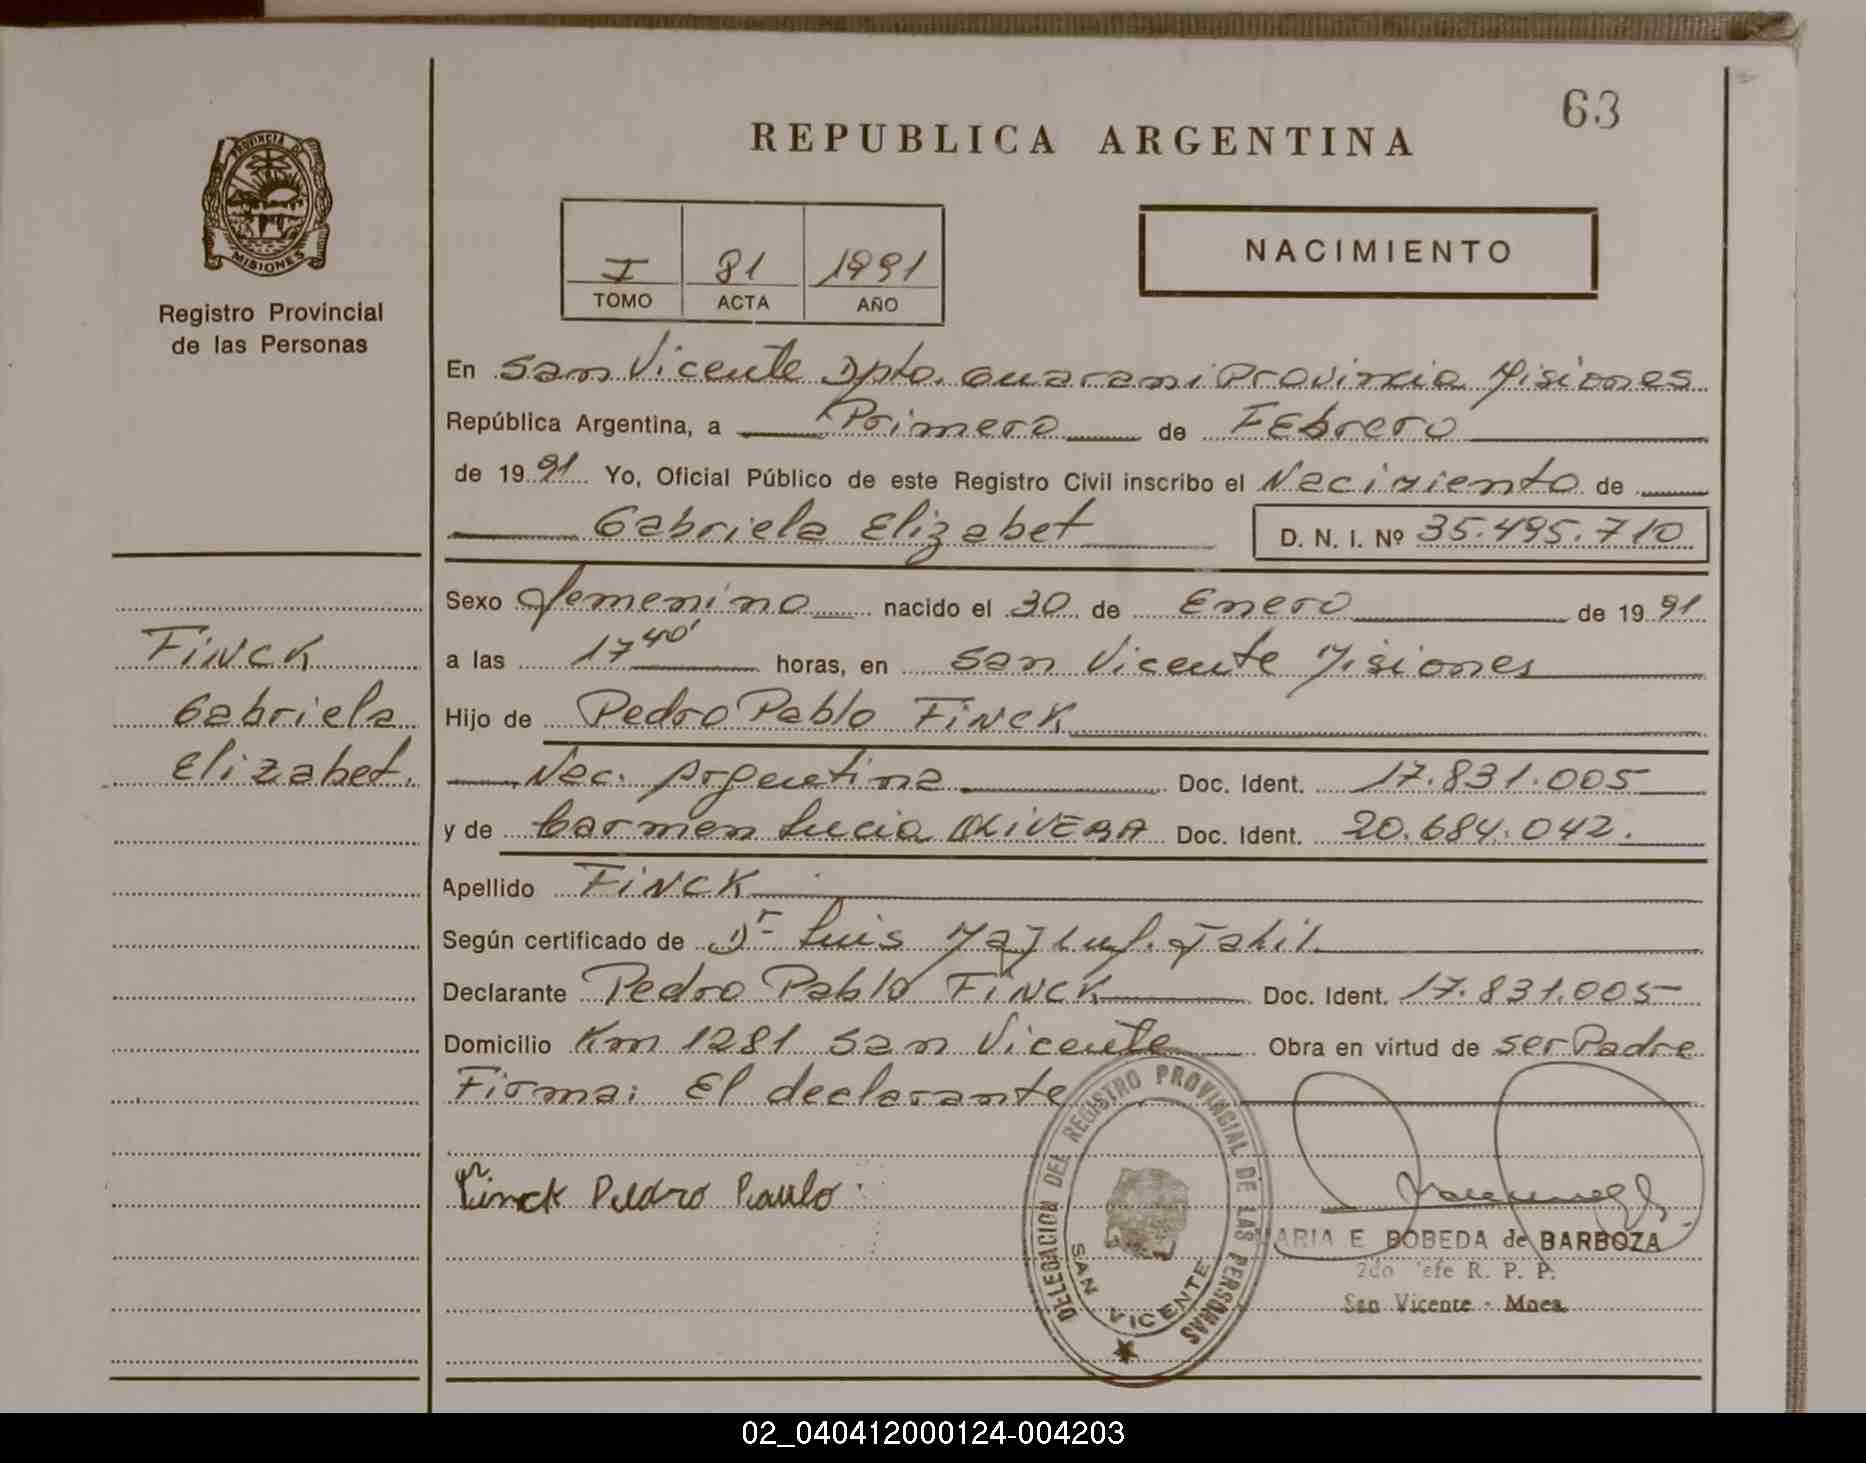 63
REPUBLICA ARGENTINA
PROVINCIA DE MISIONES
Registro Provincial
de las Personas
I 81 1991
TOMO ACTA AÑO
NACIMIENTO
En San Vicente Dpto. Guarani Provincia Misiones
República Argentina, a Primero de FEbrero
de 1991 Yo, Oficial Público de este Registro Civil inscribo el Nacimiento de
Gabriela Elizabet D. N. I. Nº 35.495.710
Sexo femenino nacido el 30 de Enero de 1991
a las 17 40' horas, en San Vicente Misiones
Hijo de Pedro Pablo FiNCK
Nac. Argentina Doc. Ident. 17.831.005
y de Carmen Lucia OLiVERA Doc. Ident. 20.684.042.
Apellido FiNCK
Según certificado de Dr Luis
Declarante Pedro Pablo FiNCK Doc. Ident. 17.831.005
Domicilio Km 1281 San Vicente Obra en virtud de ser Padre
Firma: El declarante
FiNCK
Gabriela
Elizabet.
Finck Pedro Paulo
DELEGACION DEL REGISTRO PROVINCIAL DE LAS PERSONAS
SAN VICENTE
MARIA E BOBEDA de BARBOZA
2do Jefe R. P. P.
San Vicente - Mnes.
02_040412000124-004203